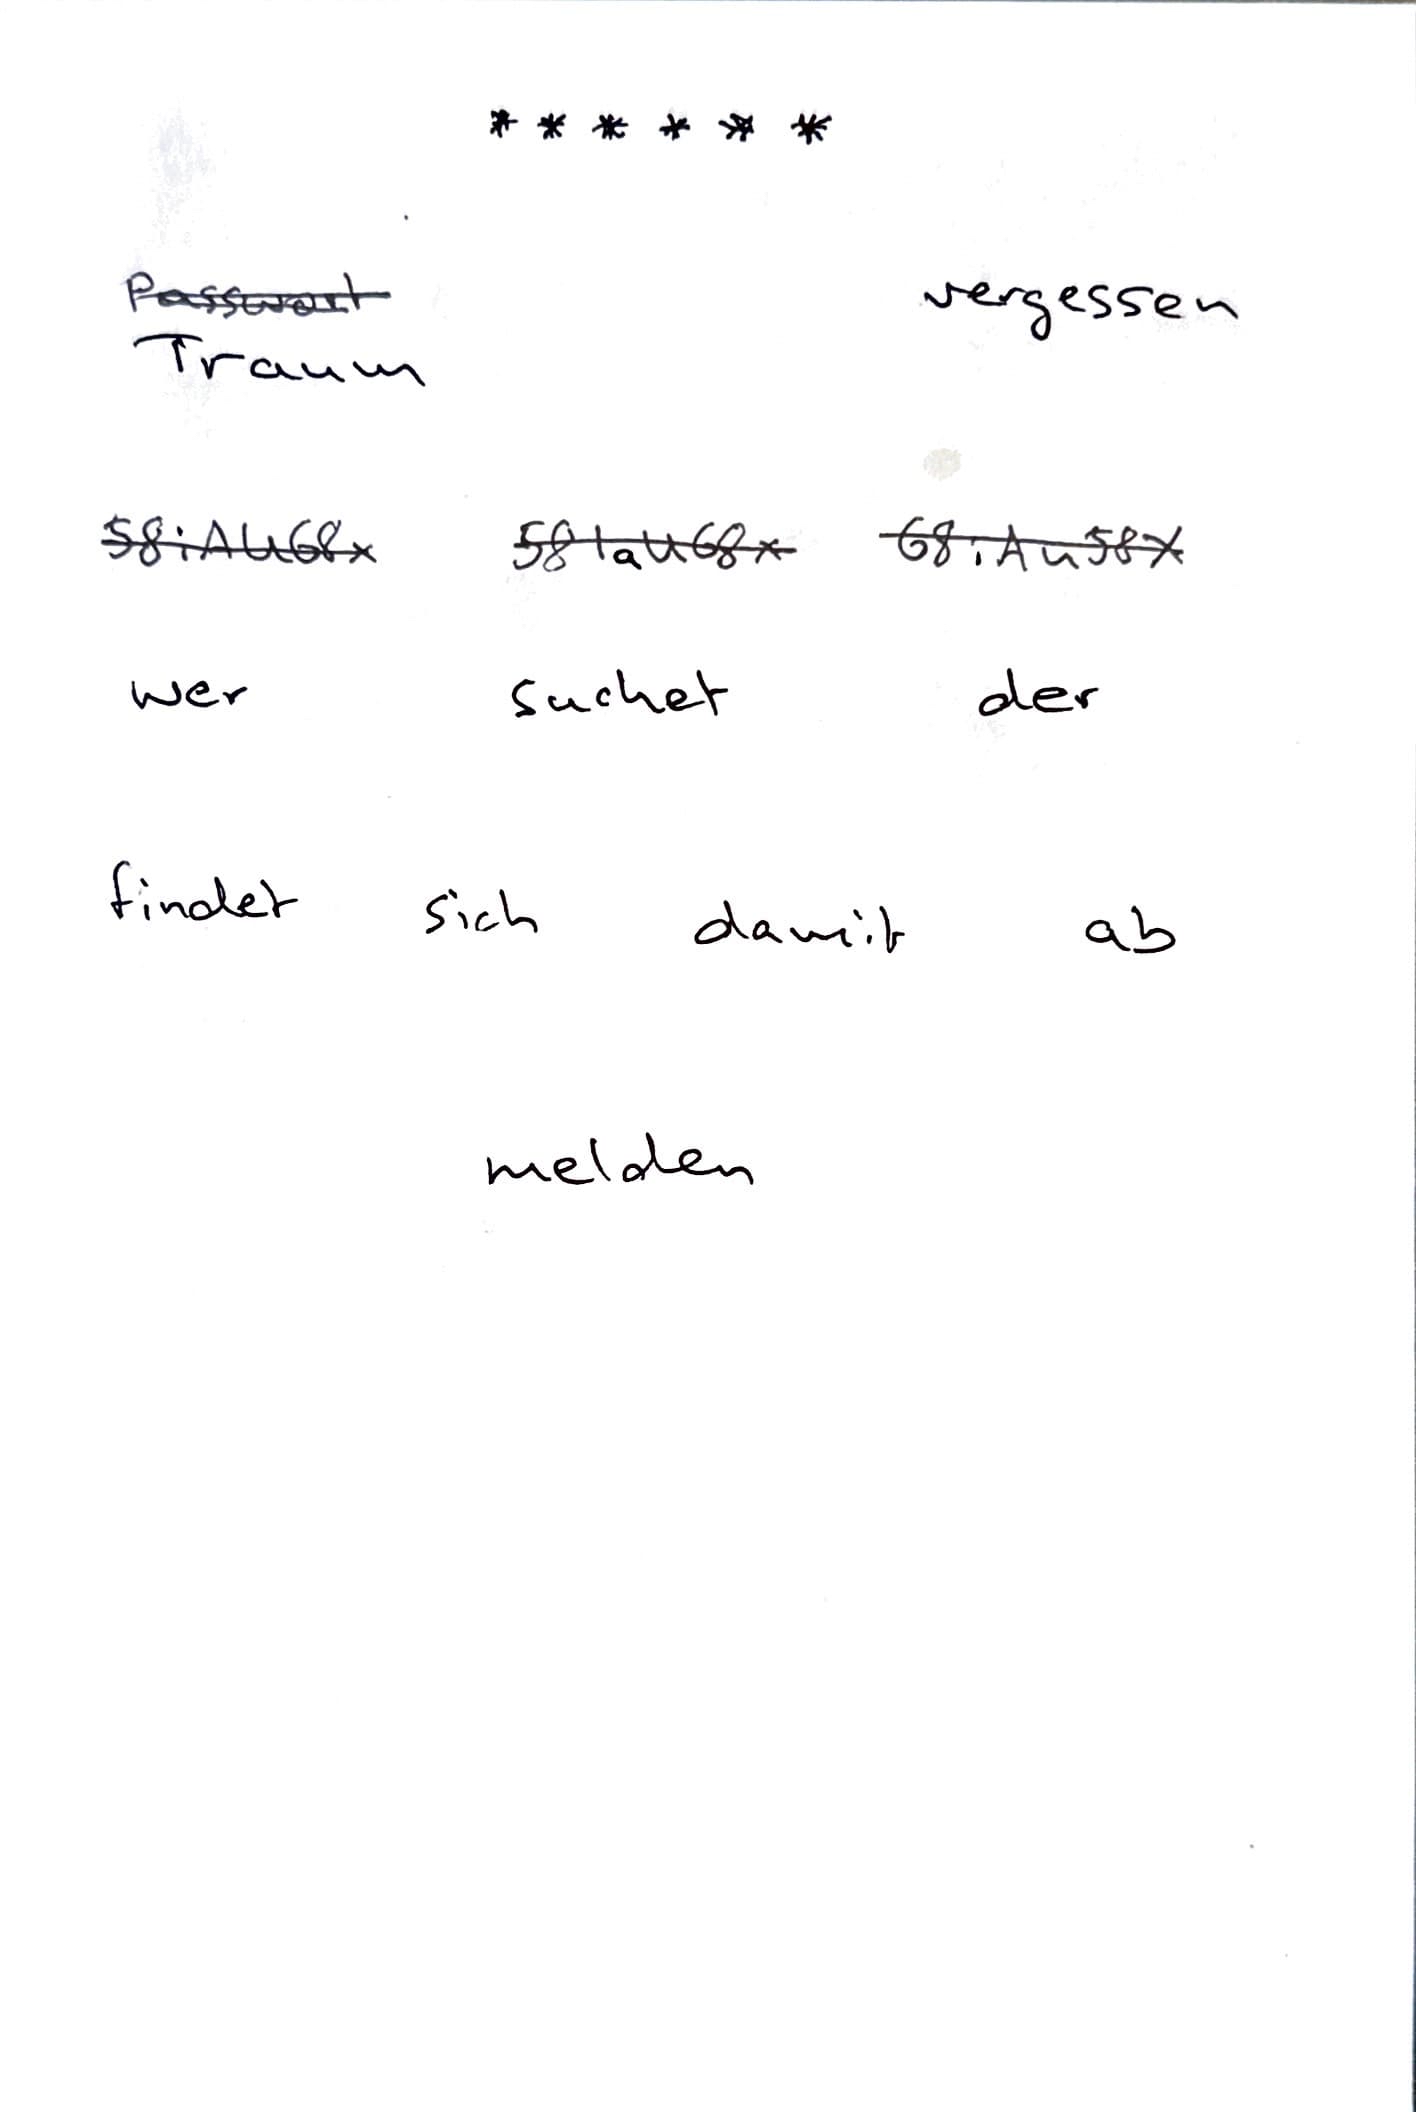 * * * * * *
Passwort vergessen
Traum
58iAU68x 58IaU68x 68iAu58X
wer suchet der
findet sich damit ab
melden